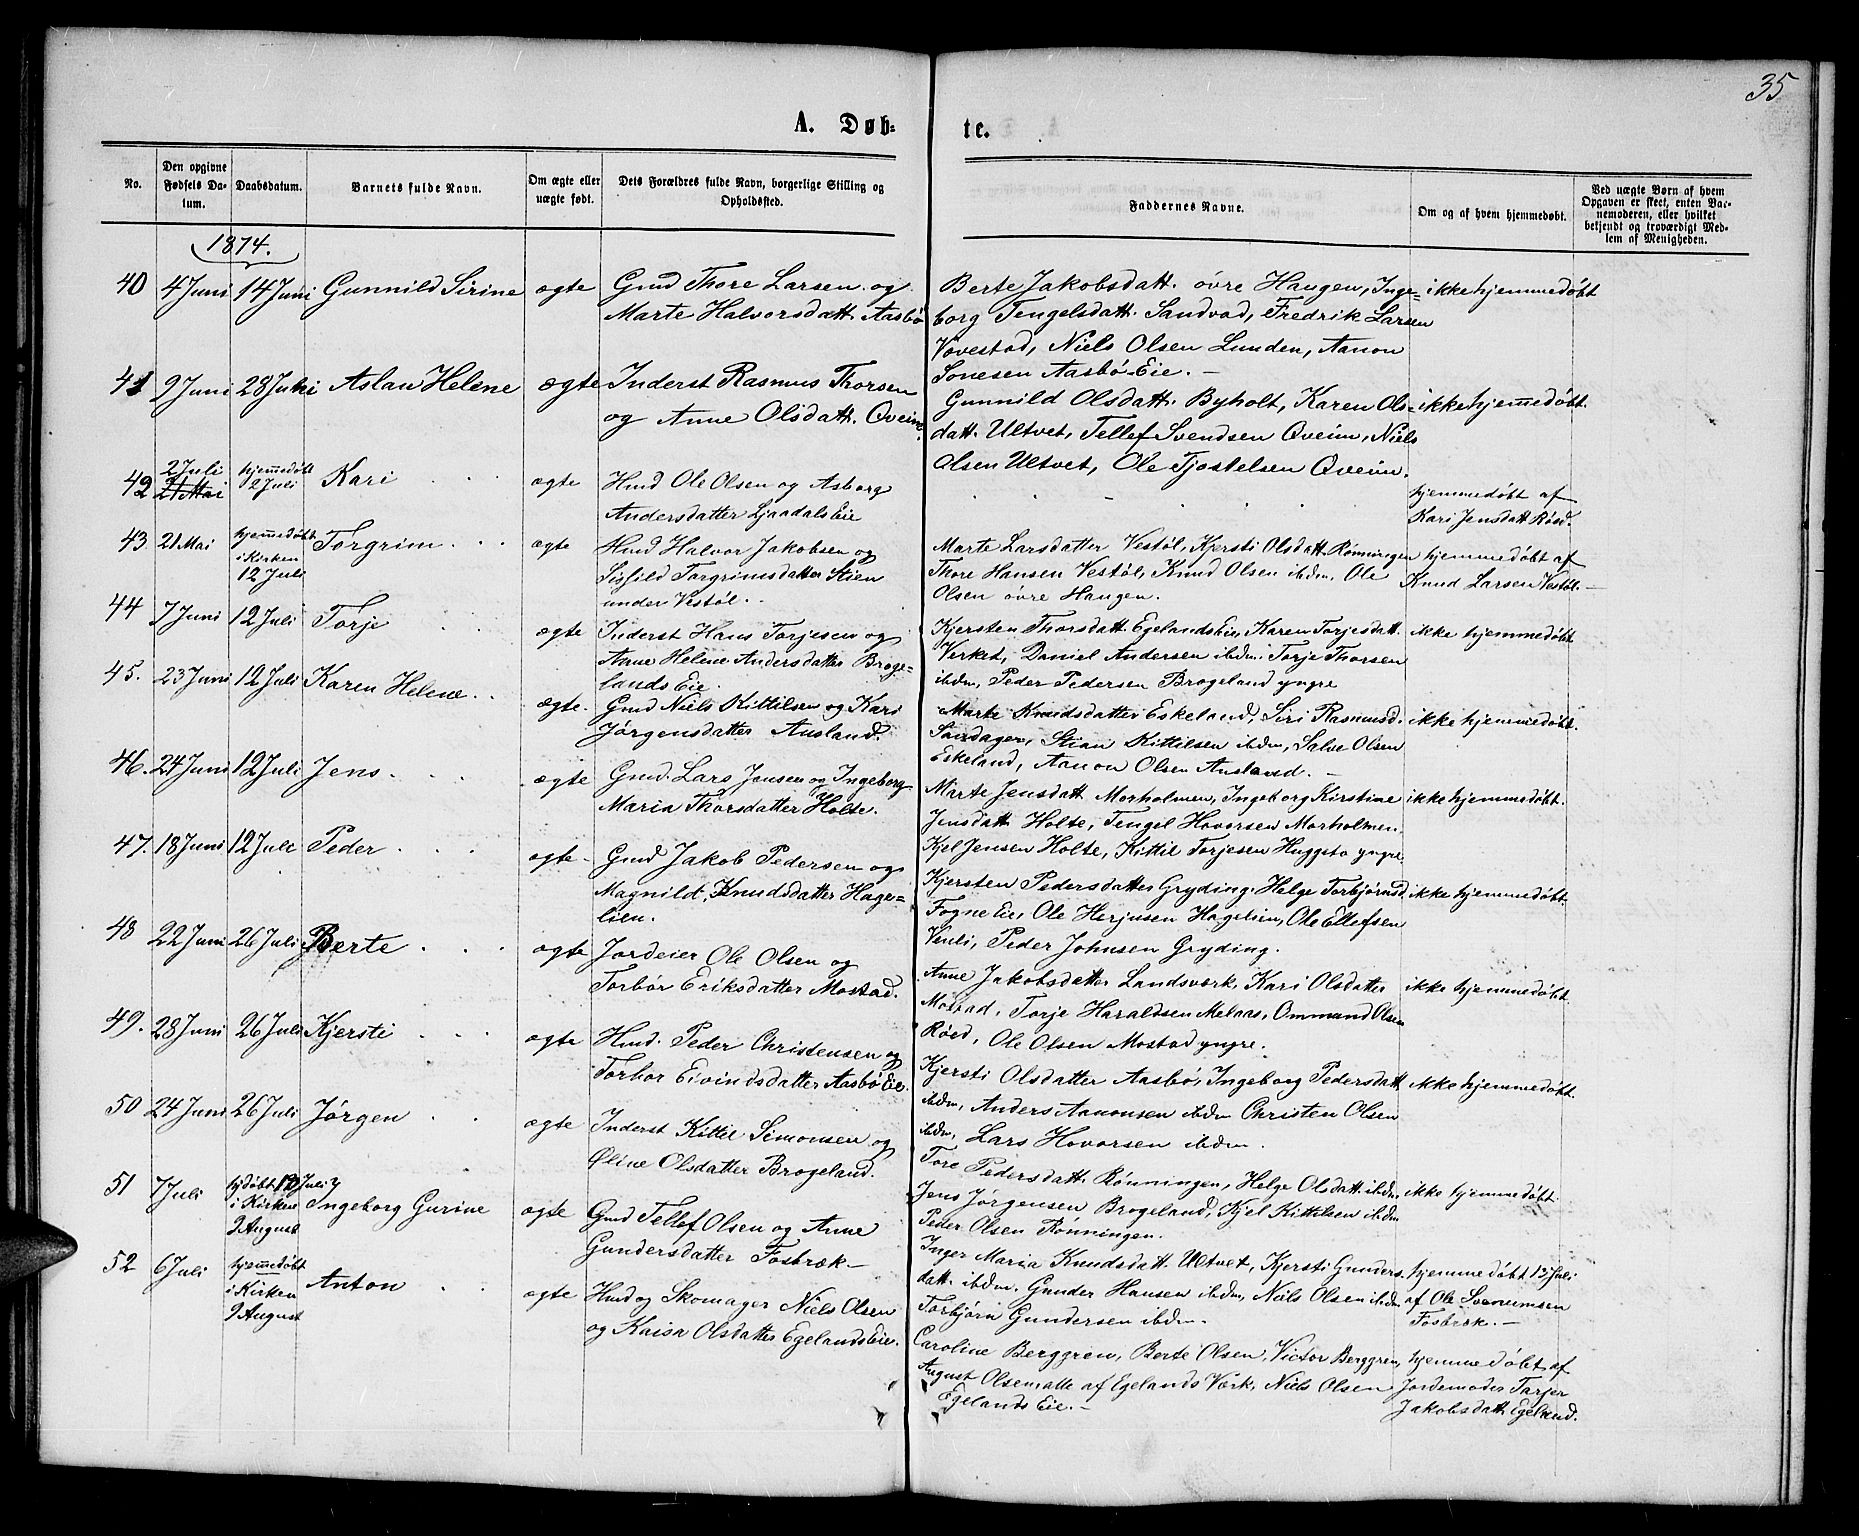 35
A. Døb-
te.
No.
Den opgivne Fødsels Da-tum.
Daabsdatum.
Barnets fulde Navn.
Om ægte eller uægte født.
Dets Forældres fulde Navn, borgerlige Stilling og Opholdssted.
Faddernes Navne.
Om og af hvem hjemmedøbt.
Ved uægte Børn af hvem Opgaven er skeet, enten Bar-nemoderen, eller hvilket bekjendt og troværdigt Med-lem af Menigheden.
1874.
40 4 Juni 14 Juni Gunnild Sirine ægte Gmd Thore Larsen og
Marte Halvorsdatt. Aasbø
Berte Jakobsdatt. övre Haugen, Inge- ikke hjemmedøbt
borg Tengelsdatt. Sandvad, Fredrik Larsen
Vovestad, Niels Olsen Lunden, Aanon
Sonesen Aasbö Eie. -
41 9 Juni 28 Juni Aslau Helene ægte Inderst Rasmus Thorsen
og Anne Olsdatt. Qveim.
Gunnild Olsdatt. Byholt, Karen Ols- ikke hjemmedøbt.
datt. Ultvet, Tellef Svendsen Qveim, Niels
Olsen Ultvet, Ole Tjostelsen Qveim.
42 2 Juli 21 Mai hjemmedøbt 12 Juli Kari ægte Hmd Ole Olsen og Asborg
Andersdatter Ljaadals Eie
hjemmedøbt af
Kari Jensdatt Røsd.
43. 21 Mai hjemmedøbt i Kirken 12 Juli Torgrim ægte Hmd Halvor Jakobsen og
Sigfild Torgrimsdatter Stien
under Vestöl.
Marte Larsdatter Vestöl, Kjersti Olsdatt. Rönningen hjemmedøbt af
Thore Hansen Vestöl, Knud Olsen ibdm, Ole Knud Larsen Vestöl. -
Olsen övre Haugen.
44 7 Juni 12 Juli Torje ægte Inderst Hans Torjesen og
Anne Helene Andersdatter Broge-
lands Eie.
Kjersten Thorsdatt. Egelands Eie, Karen Torjesdatt. ikke hjemmedøbt
Verket, Daniel Andersen ibdm. Torje Thorsen
ibdm, Peder Pedersen Brogeland yngre
45. 23 Juni 12 Juli Karen Helene ægte. Gmd Niels Kittilsen og Kari
Jørgensdatter Ausland.
Marte Knudsdatter Eskeland, Siri Rasmusd. ikke hjemmedøbt.
Söndagen, Stian Kittilsen ibdm, Salve Olsen
Eskeland, Aanon Olsen Ausland. -
46. 24 Juni 12 Juli Jens ægte Gmd. Lars Jensen og Ingeborg
Maria Thorsdatter Holte.
Marte Jensdatt Morholmen, Ingeborg Kirstine ikke hjemmedøbt.
Jensdatt Holte, Tengel Hovorsen Morholmen,
Kjel Jensen Holte, Kittil Torjesen Huggsto yngre.
47. 18 Juni 12 Juli Peder ægte Gmd Jakob Pedersen og
Magnild Knudsdatter Hage-
lien.
Kjersten Pedersdatter Gryding, Helge Torbjörnsd. ikke hjemmedøbt.
Fogne Eie, Ole Herjusen Hagelien, Ole Ellefsen
Venli, Peder Johnsen Gryding.
48 22 Juni 26 Juli Berte ægte Jordeier Ole Olsen og
Torbör Eriksdatter Mostad.
Anne Jakobsdatter Landsværk, Kari Olsdatter ikke hjemmedøbt.
Mostad, Torje Haraldsen Melaas, Ommund Olsen
Röed, Ole Olsen Mostad yngre.
49. 28 Juni 26 Juli Kjersti ægte Hmd. Peder Christensen og
Torbor Eivindsdatter Aasbö Eie.
Kjersti Olsdatter Aasbö, Ingeborg Pedersdatt ikke hjemmedøbt.
ibdm, Anders Aanonsen ibdm Christen Olsen
ibdm, Lars Hovorsen ibdm.
50 24 Juni 26 Juli Jørgen ægte Inderst Kittil Simonsen og
Øline Olsdatter Brogeland.
Tore Pedersdatt. Rönningen, Helge Olsdatt. ibdm, ikke hjemmedøbt.
Jens Jørgensen Brogeland, Kjel Kittilsen ibdm
Peder Olsen Rönningen.
51 7 Juli hjdøbt 13 Juli i Kirken 9 August Ingeborg Gurine ægte Gmd Tellef Olsen og Anne
Gundersdatter Fosbræk -
Inger Maria Knudsdatt. Ultvet, Kjersti Gunders- hjemmedøbt 13 Juli
datt. ibdm. Gunder Hansen ibdm, Niels Olsen ibdm af Ole Svenumsen
Torbjörn Gundersen ibdm. Fosbræk. -
52 6 Juli hjemmedøbt i Kirken 9 August Anton ægte Hmd og Skomager Niels Olsen
og Kaisa Olsdatter Egelands Eie.
Caroline Berggren, Berte Olsen, Victor Berggren, hjemmedøbt af
August Olsen, alle af Egelands Værk, Niels Olsen Jordemoder Tarjer
Egelands Eie. - Jakobsdatt. Egeland.